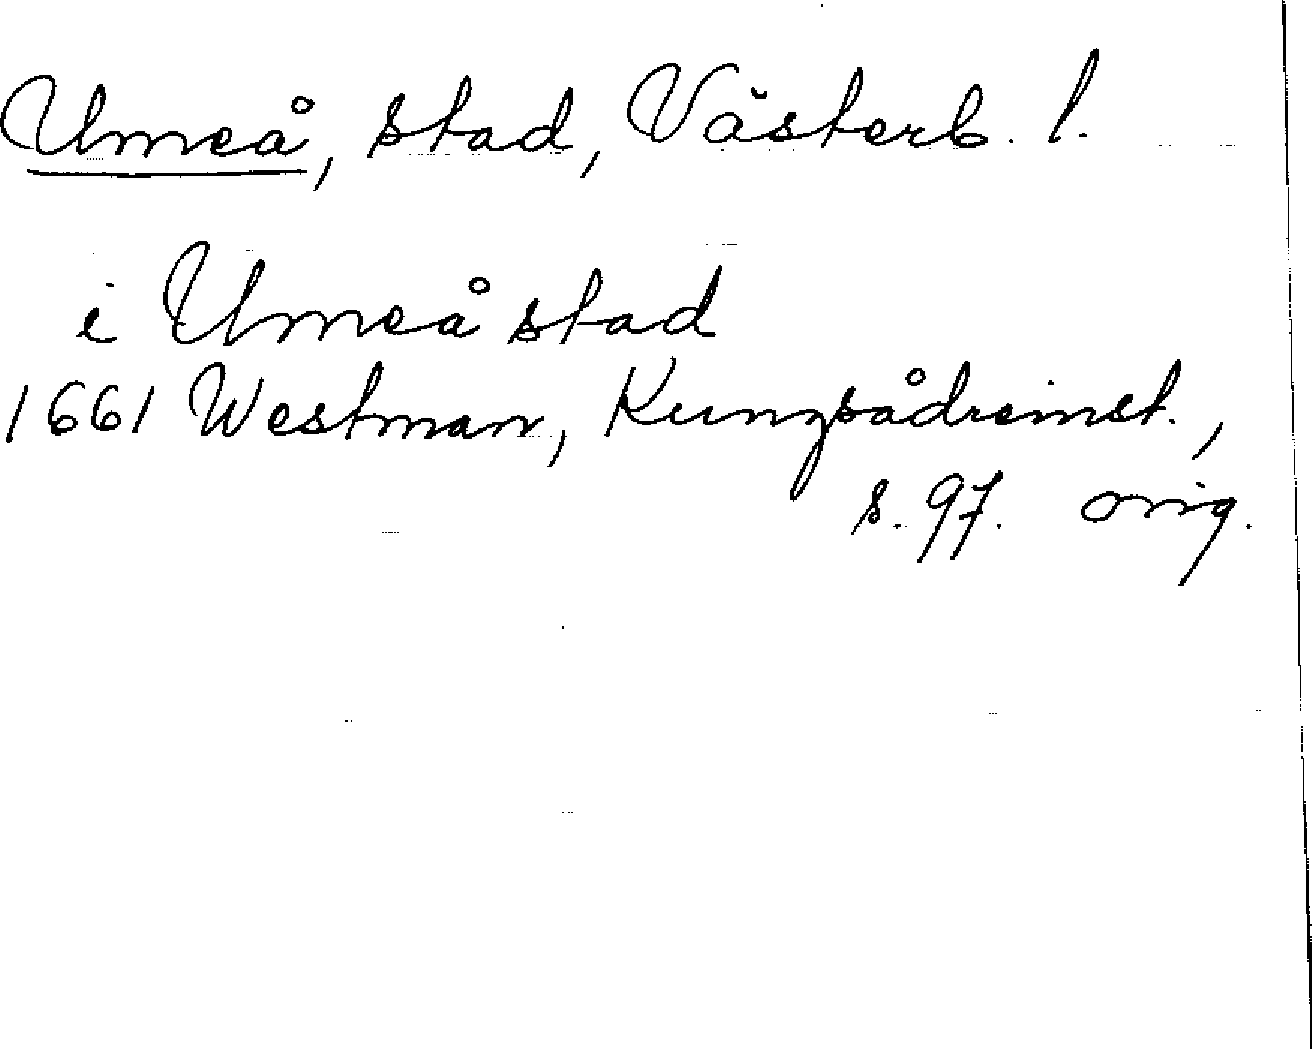 Umeå, stad, Västerb. l.
i Umeå stad
1661 Westman, Kungsådreinst.,
s. 97. orig.